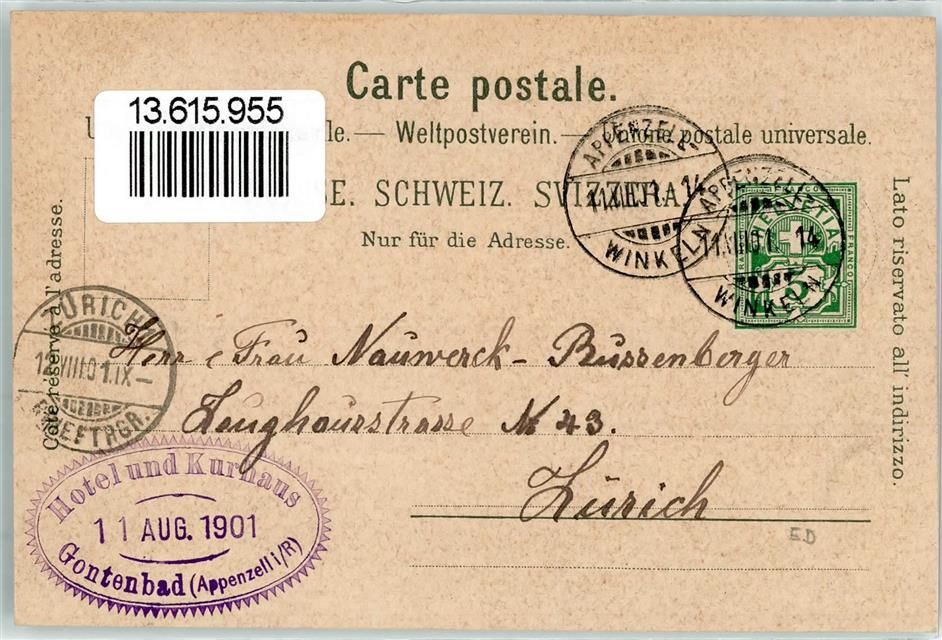 13.615.955
Carte postale.
le. — Weltpostverein. — Unione postale universale.
SE. SCHWEIZ. SVIZZERA.
Nur für die Adresse.
Côté réservé à l'adresse.
Lato riservato all' indirizzo.
APPENZELL-
11.VIII.01. 14
WINKELN
APPENZELL-
11.VIII.01. 14
WINKELN
HELVETIA
FRANCO
5
ZÜRICH
12.VIII.01.IX-
BRIEFTRGR.
Herr & Frau Nauwerck-Bussenberger
Zeughausstrasse № 43.
Zürich
Hotel und Kurhaus
11 AUG. 1901
Gontenbad (Appenzell i/R)
ED